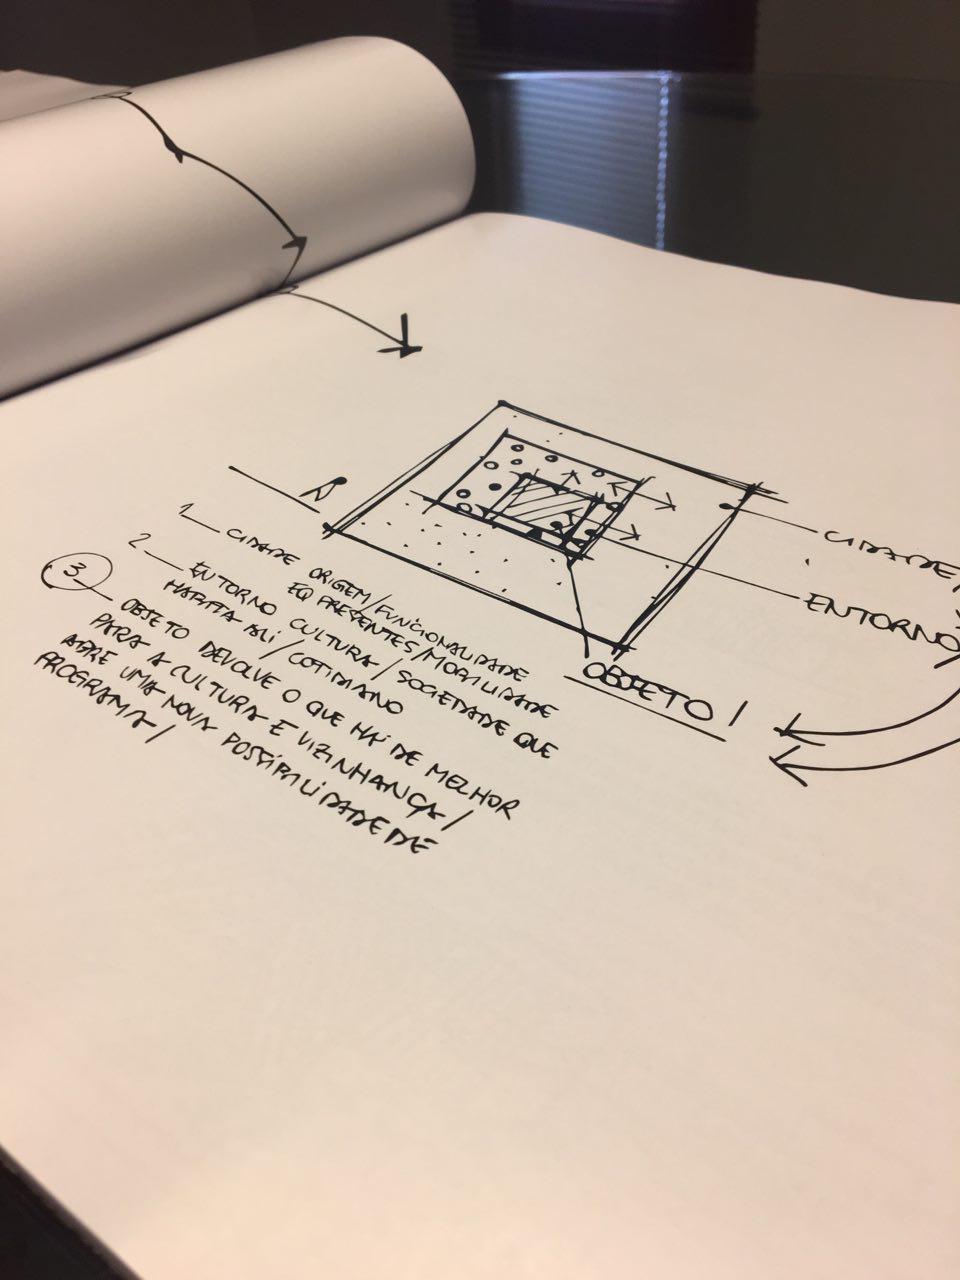 CIDADE/
ENTORNO
OBJETO!
1 CIDADE ORIGEM/FUNCIONALIDADE
EQ PRESENTES/MOBILIDADE
2 ENTORNO CULTURA/SOCIEDADE QUE
HABITA ALI/COTIDIANO
3 OBJETO DEVOLVE O QUE HÁ DE MELHOR
PARA A CULTURA E VIZINHANÇA/
ABRE UMA NOVA POSSIBILIDADE DE
PROGRAMA/